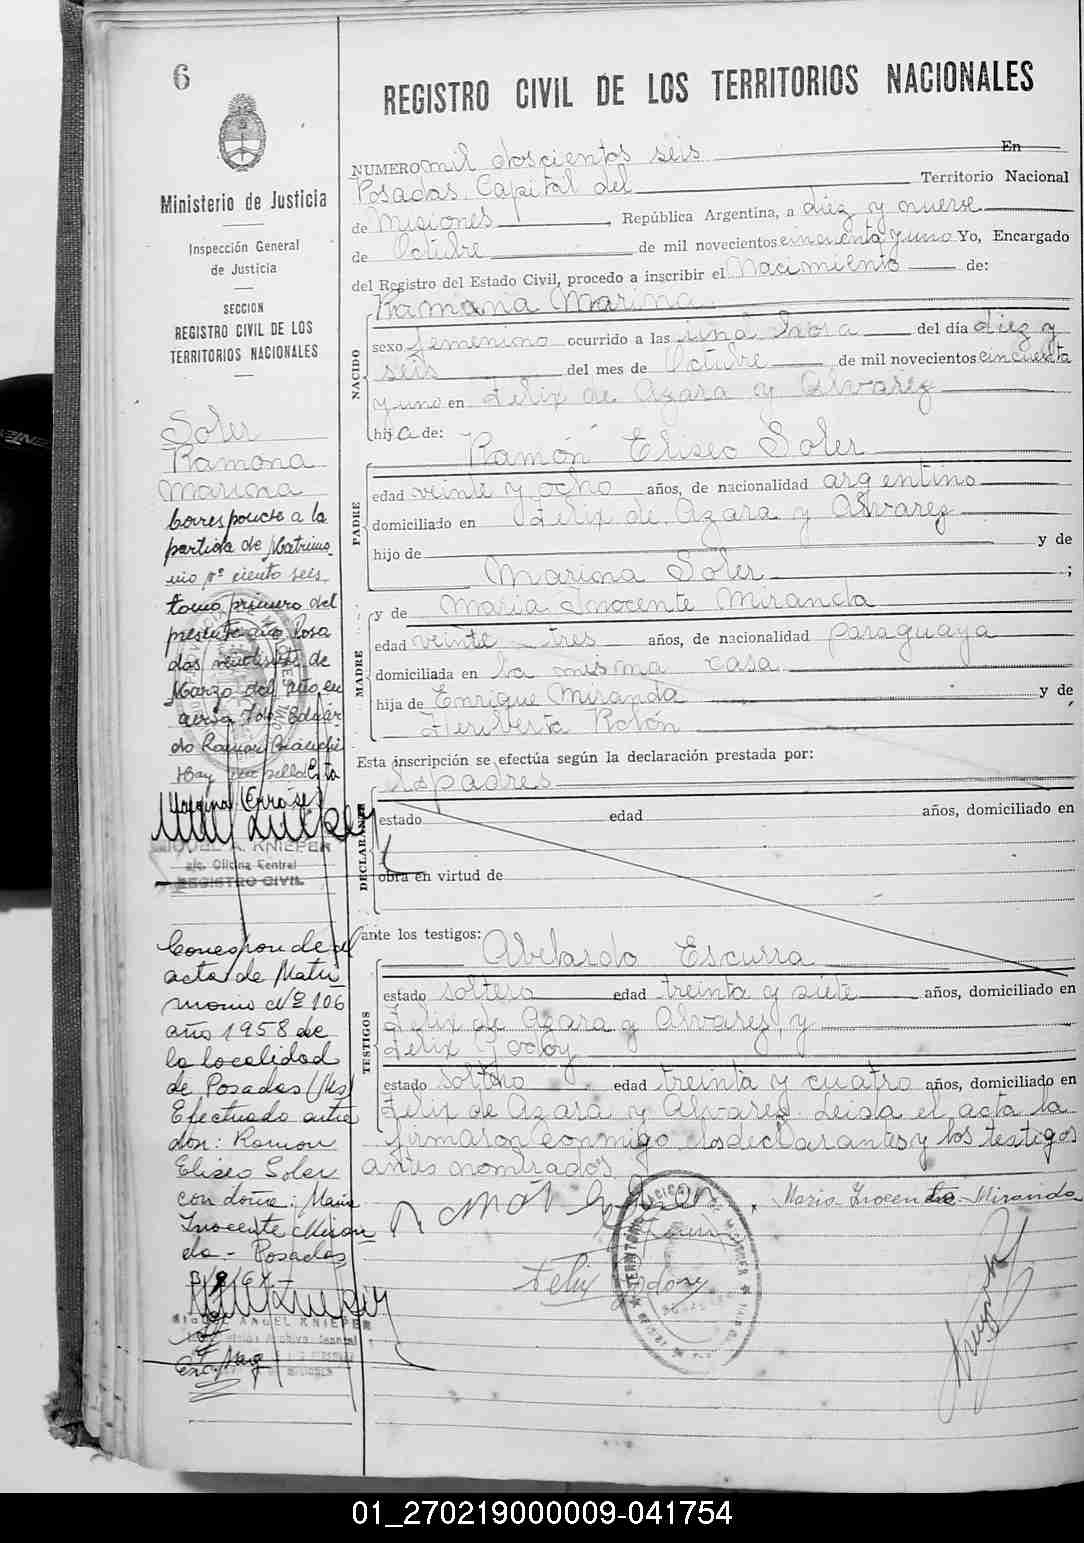 6
REGISTRO CIVIL DE LOS TERRITORIOS NACIONALES
Ministerio de Justicia
Inspección General
de Justicia
SECCION
REGISTRO CIVIL DE LOS
TERRITORIOS NACIONALES
NUMERO mil doscientos seis En
Posadas, Capital del Territorio Nacional
de Misiones, República Argentina, a diez y nueve
de Octubre de mil novecientos cincuenta y uno Yo, Encargado
del Registro del Estado Civil, procedo a inscribir el Nacimiento de:
NACIDO
Ramona Marina
sexo femenino ocurrido a las una hora del día diez y
seis del mes de Octubre de mil novecientos cincuenta
y uno en Felix de Azara y Alvarez
hij a de:
PADRE
Ramón Eliseo Soler
edad veinte y ocho años, de nacionalidad argentino
domiciliado en Felix de Azara y Alvarez
hijo de y de
Marina Soler ;
MADRE
y de Maria Inocente Miranda
edad veinte tres años, de nacionalidad paraguaya
domiciliada en la misma casa
hija de Enrique Miranda y de
Heriberta Rolón
Esta inscripción se efectúa según la declaración prestada por:
DECLARANTE
los padres
estado edad años, domiciliado en
obra en virtud de
ante los testigos:
TESTIGOS
Abelardo Escurra
estado soltero edad treinta y siete años, domiciliado en
Felix de Azara y Alvarez, y
Felix Godoy
estado soltero edad treinta y cuatro años, domiciliado en
Felix de Azara y Alvarez. Leida el acta la
firmaron conmigo los declarantes y los testigos
antes nombrados
Maria Inocente Miranda
Felix Godoy
Soler
Ramona
Marina
Corresponde a la
partida de Matrimo
nio nº ciento seis
tomo primero del
presente año Posa
das de
Marzo del año en
do Ramon
MIGUEL A. KNIEPER
a/c. Oficina Central
REGISTRO CIVIL
Corresponde al
acta de Matri
monio Nº 106
año 1958 de
la localidad
de Posadas (Ms)
Efectuado entre
don: Ramon
Eliseo Soler
con doña: Maria
Inocente Miran
da.- Posadas
MIGUEL ANGEL KNIEPER
01_270219000009-041754